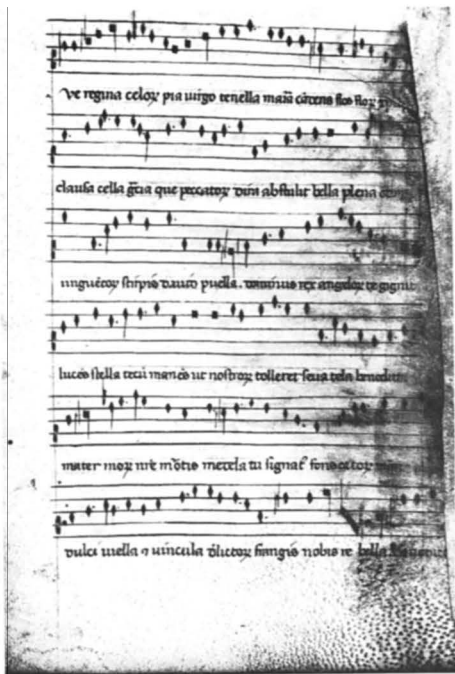 Ve regina celoꝝ pia uirgo tenella maia cãtens flos floꝝ
clausa cella gr̃cia que peccatoꝝ dira abstulit bella plena
unguẽtoꝝ stirpis dauid puella. dominus rex angeloꝝ te gignit
lucẽs stella tecũ manẽs ut nostroꝝ tolleret seua tela benedicta
mater moꝝ nr̃e mõtis medela tu signat᷑ fons
dulci uella ⁊ uincula dilictoꝝ frangis nobis re bella